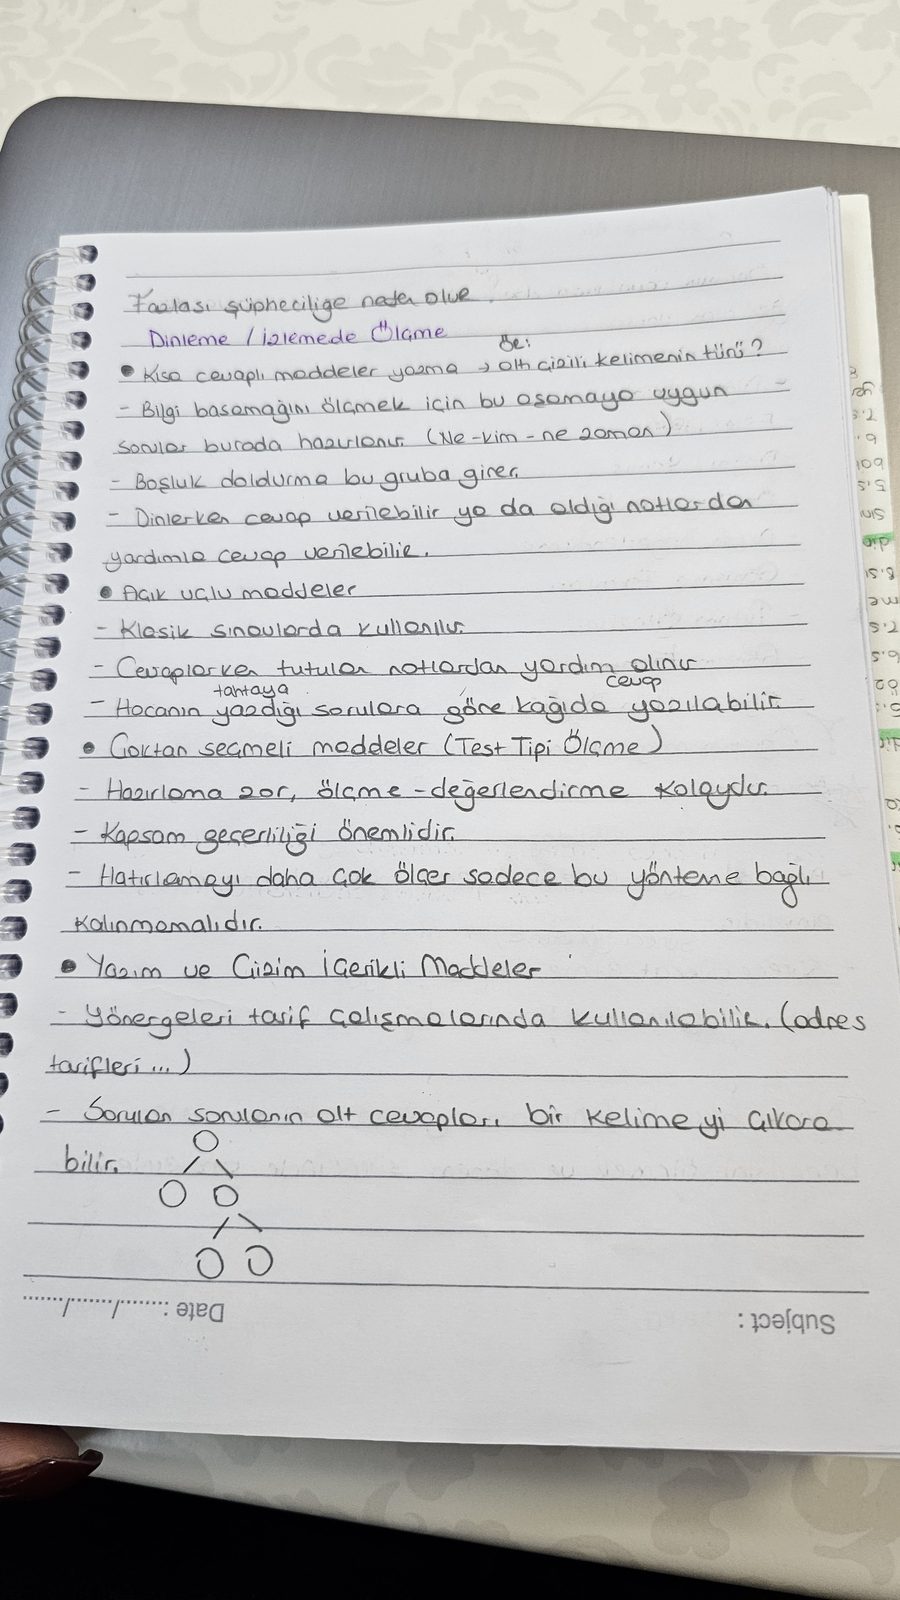 Fazlası şüpheciliğe neden olur.
Dinleme / İzlemede Ölçme
• Kısa cevaplı maddeler yazma → Ör: altı çizili kelimenin türü?
- Bilgi basamağını ölçmek için bu aşamaya uygun
sorular burada hazırlanır (Ne-kim-ne zaman)
- Boşluk doldurma bu gruba girer.
- Dinlerken cevap verilebilir ya da aldığı notlardan
yardımla cevap verilebilir.
• Açık uçlu maddeler
- Klasik sınavlarda kullanılır.
- Cevaplarken tutulan notlardan yardım alınır
- Hocanın tahtaya yazdığı sorulara göre kağıda cevap yazılabilir.
• Çoktan seçmeli maddeler (Test Tipi Ölçme)
- Hazırlama zor, ölçme-değerlendirme kolaydır.
- Kapsam geçerliliği önemlidir.
- Hatırlamayı daha çok ölçer sadece bu yönteme bağlı
kalınmamalıdır.
• Yazım ve Çizim İçerikli Maddeler
- Yönergeleri tarif çalışmalarında kullanılabilir. (adres
tarifleri ...)
- Sorulan soruların alt cevapları bir kelimeyi çıkara
bilir.
Date : ......./......./.......
Subject :